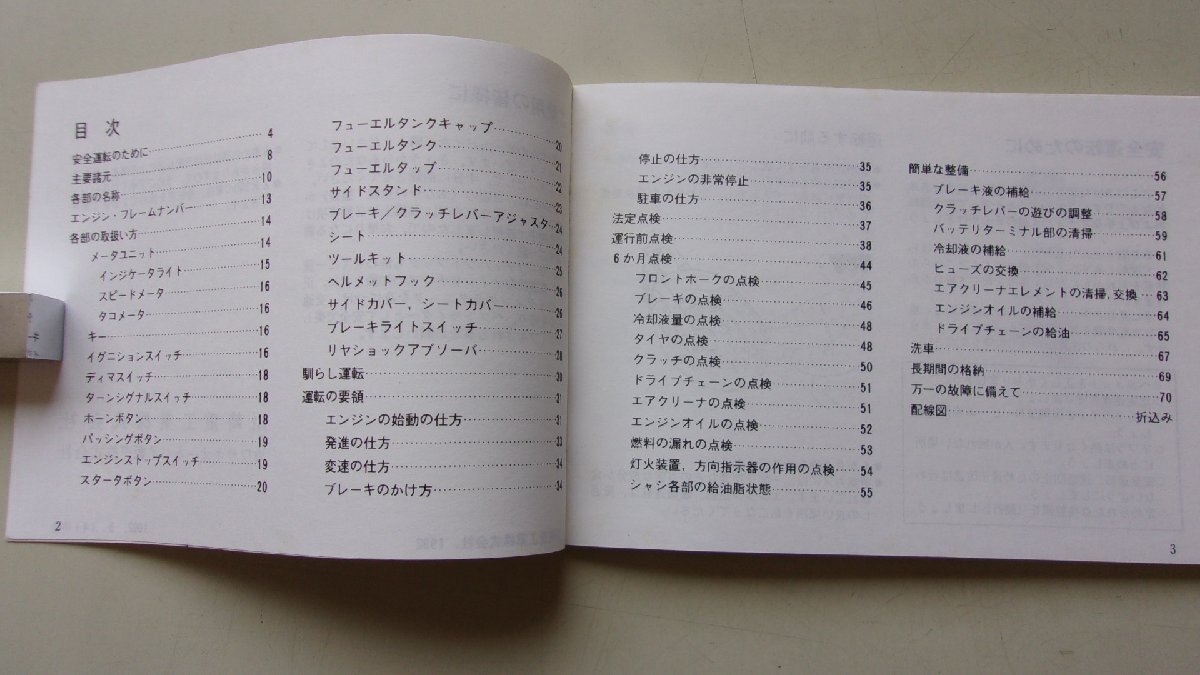 目次
安全運転のために 4
主要諸元 8
各部の名称 10
エンジン・フレームナンバー 13
各部の取扱い方 14
メータユニット 14
インジケータライト 15
スピードメータ 16
タコメータ 16
キー 16
イグニションスイッチ 16
ディマスイッチ 18
ターンシグナルスイッチ 18
ホーンボタン 18
パッシングボタン 19
エンジンストップスイッチ 19
スタータボタン 20
2
フューエルタンクキャップ 20
フューエルタンク 21
フューエルタップ 22
サイドスタンド 23
ブレーキ/クラッチレバーアジャスタ 24
シート 24
ツールキット 25
ヘルメットフック 26
サイドカバー,シートカバー 26
ブレーキライトスイッチ 27
リヤショックアブソーバ 28
馴らし運転 30
運転の要領 31
エンジンの始動の仕方 31
発進の仕方 33
変速の仕方 34
ブレーキのかけ方 34
停止の仕方 35
エンジンの非常停止 35
駐車の仕方 36
法定点検 37
運行前点検 38
6か月点検 44
フロントホークの点検 45
ブレーキの点検 46
冷却液量の点検 48
タイヤの点検 48
クラッチの点検 50
ドライブチェーンの点検 51
エアクリーナの点検 51
エンジンオイルの点検 52
燃料の漏れの点検 53
灯火装置,方向指示器の作用の点検 54
シャシ各部の給油脂状態 55
簡単な整備 56
ブレーキ液の補給 57
クラッチレバーの遊びの調整 58
バッテリターミナル部の清掃 59
冷却液の補給 61
ヒューズの交換 62
エアクリーナエレメントの清掃,交換 63
エンジンオイルの補給 64
ドライブチェーンの給油 65
洗車 67
長期間の格納 69
万一の故障に備えて 70
配線図 折込み
3